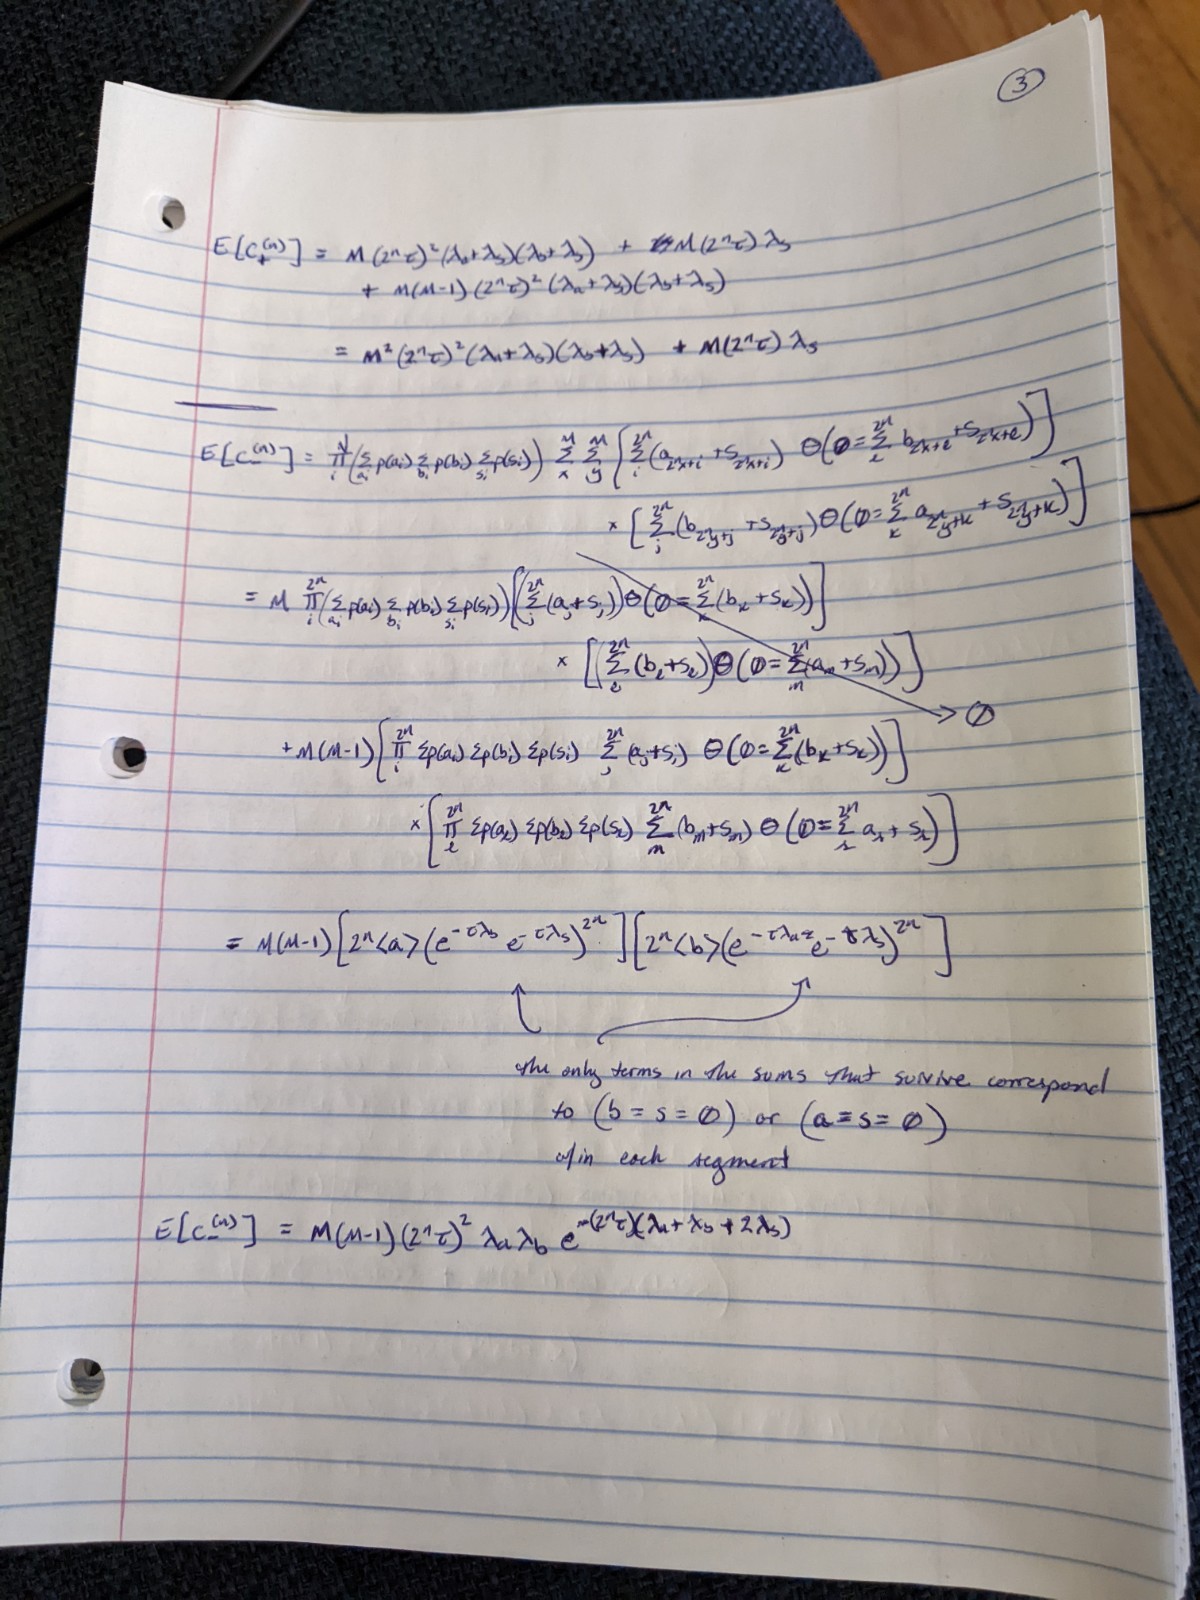 3
E[C₊⁽ⁿ⁾] = M(2ⁿτ)²(λₐ+λₛ)(λ_b+λₛ) + M(2ⁿτ)λₛ
+ M(M-1)(2ⁿτ)²(λₐ+λₛ)(λ_b+λₛ)
= M²(2ⁿτ)²(λₐ+λₛ)(λ_b+λₛ) + M(2ⁿτ)λₛ
E[C₋⁽ⁿ⁾] = ∏ᵢᴺ(Σ_{aᵢ} p(aᵢ) Σ_{bᵢ} p(bᵢ) Σ_{sᵢ} p(sᵢ)) Σₓᴹ Σ_yᴹ [Σᵢ^{2ⁿ}(a_{2ⁿx+i} + s_{2ⁿx+i}) Θ(0=Σ_ℓ^{2ⁿ} b_{2ⁿx+ℓ} + s_{2ⁿx+ℓ})]
× [Σⱼ^{2ⁿ}(b_{2ⁿy+j} + s_{2ⁿy+j})Θ(0=Σₖ^{2ⁿ} a_{2ⁿy+k} + s_{2ⁿy+k})]
= M ∏ᵢ^{2ⁿ}(Σ_{aᵢ} p(aᵢ) Σ_{bᵢ} p(bᵢ) Σ_{sᵢ} p(sᵢ)) [(Σⱼ^{2ⁿ}(aⱼ+sⱼ))Θ(0=Σₖ^{2ⁿ}(bₖ+sₖ))]
× [(Σ_ℓ^{2ⁿ}(b_ℓ+s_ℓ))Θ(0=Σₘ^{2ⁿ}(aₘ+sₘ))]
→ 0
+M(M-1)[∏ᵢ^{2ⁿ} Σp(aᵢ) Σp(bᵢ) Σp(sᵢ) Σⱼ^{2ⁿ}(aⱼ+sⱼ) Θ(0=Σₖ^{2ⁿ}(bₖ+sₖ))]
×[∏_ℓ^{2ⁿ} Σp(a_ℓ) Σp(b_ℓ) Σp(s_ℓ) Σₘ^{2ⁿ}(bₘ+sₘ) Θ(0=Σᵣ^{2ⁿ} aᵣ+sᵣ)]
= M(M-1)[2ⁿ<a>(e^{-τλ_b} e^{-τλₛ})^{2ⁿ}][2ⁿ<b>(e^{-τλₐ} e^{-τλₛ})^{2ⁿ}]
the only terms in the sums that survive correspond
to (b=s=0) or (a=s=0)
w/in each segment
E[C₋⁽ⁿ⁾] = M(M-1)(2ⁿτ)² λₐλ_b e^{-(2ⁿτ)(λₐ+λ_b+2λₛ)}